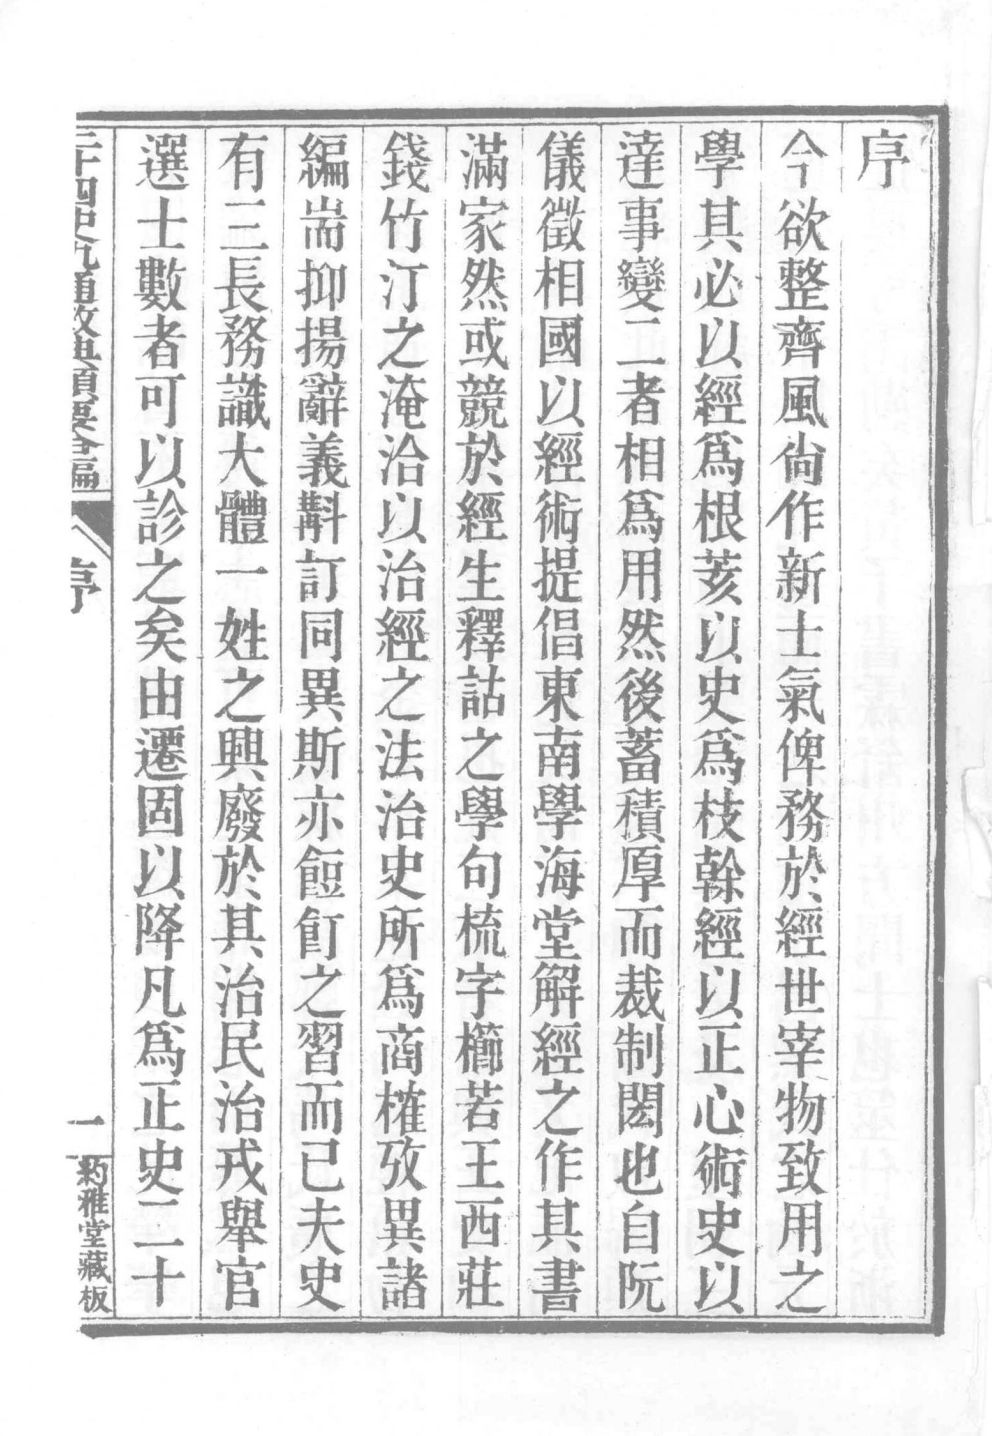 序
今欲整齊風尙作新士氣俾務於經世宰物致用之
學其必以經爲根荄以史爲枝榦經以正心術史以
達事變二者相爲用然後蓄積厚而裁制閎也自阮
儀徵相國以經術提倡東南學海堂解經之作其書
滿家然或競於經生釋詁之學句梳字櫛若王西莊
錢竹汀之淹洽以治經之法治史所爲商榷攷異諸
編耑抑揚辭義斠訂同異斯亦餖飣之習而已夫史
有三長務識大體一姓之興廢於其治民治戎舉官
選士數者可以診之矣由遷固以降凡爲正史二十
二十四史九通政典類要合編
序
一
約雅堂藏板